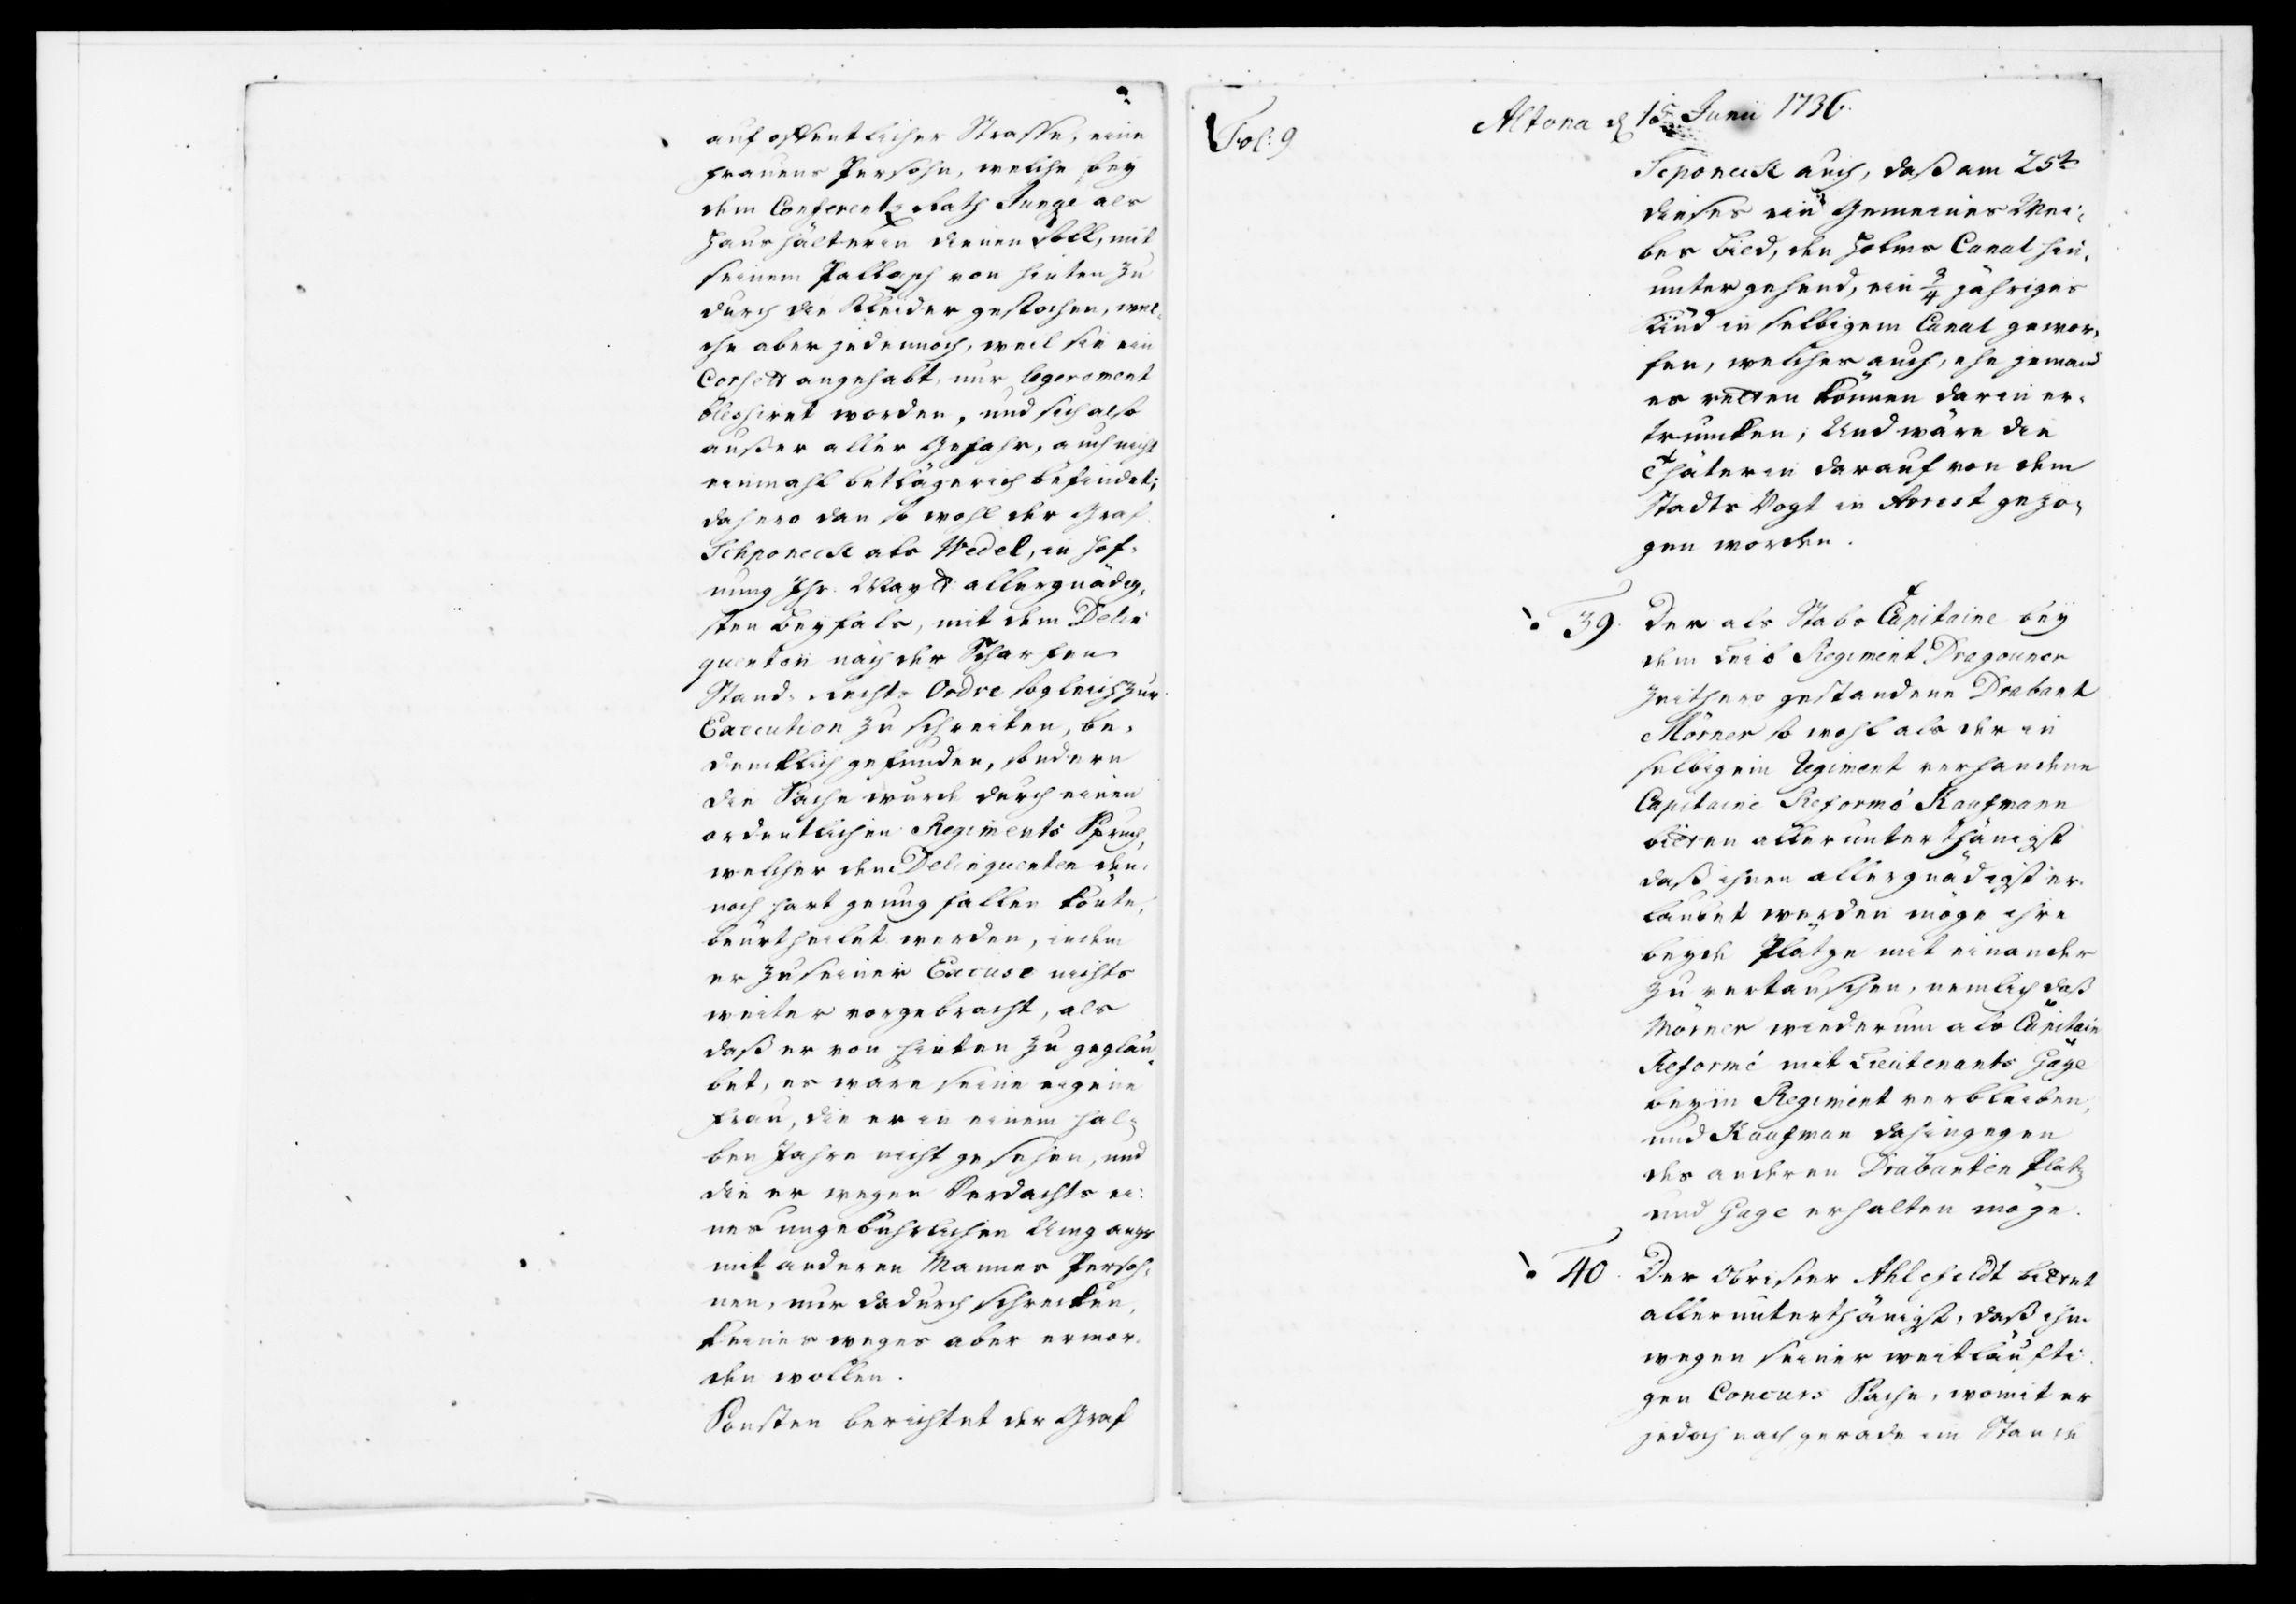 auf öffentlicher Strasse, eine
Frauens Persohn, welche bey
dem Conferentz Rath Junge als
Haushälterin dienen soll, mit
seinem Pallasch von hinten zu
durch die Kleider gestochen, wel¬
che aber jedennoch, weil sie ein
Corsett angehabt, nur legerement
blessiret worden, und sich also
außer aller Gefahr, auch nicht
einmahl bettlägerich befindet;
dahero dan so wohl der Graf
Schponeck als Wedel, in Hof¬
nung Ihr. Mayt. allergnädig¬
sten Beyfals, mit dem Delin
quenten nach der Scharfen
Stand-Rechts Ordre sogleich zur
Execution zu schreiten, be¬
dencklich gefunden, sondern
die Sache wurde durch einen
ordentlichen Regiments Spruch,
welcher dem Delinquenten den¬
noch hart genug fallen könte,
beurtheilet werden, indem
er zu seiner Excuse nichts
weiter vorgebracht, als
daß er von hinten zu geglau¬
bet, es wäre seine eigene
Frau, die er in einem hal¬
ben Jahre nicht gesehen, und
die er wegen Verdachts ei¬
nes ungebührlichen Umgangs
mit anderen Mannes Persoh¬
nen, nur dadurch schrecken,
keines weges aber ermor¬
den wollen.
Sonsten berichtet der Graf
Fol: 9
Altona d 15 Junii 1736.
Sponeck auch, daß am 25t
dieses ein Gemeines Wei¬
bes Bild, den Holms Canal hin¬
unter gehend, ein 3/4 jähriges
Kind in selbigem Canal gewor¬
fen, welches auch, ehe jemand
es retten können darin er¬
truncken; Und wäre die
Thäterin darauf von dem
Stadts Vogt in Arrest gezo¬
gen worden.
39. Der als Stabs Capitaine bey
dem Leib Regiment Dragouner
zeithero gestandene Drabant
Mörner so wohl als der in
selbigem Regiment verhandene
Capitaine Reformé Kaufmann
bitten allerunterthänigst
daß ihnen allergnädigst er¬
laubet werden möge ihre
beyde Plätze mit einander
zu vertauschen, nemlich daß
Mörner wiederum als Capitain
Reformé mit Lieutenants Gage
beym Regiment verbleiben,
und Kaufman dahingegen
des anderen Drabanten Platz
und Gage erhalten möge.
40. Der Obrister Ahlefeldt bittet
allerunterthänigst, daß ihm
wegen seiner weitläufti¬
gen Concurs Sache, womit er
jedoch nach gerade im Stande